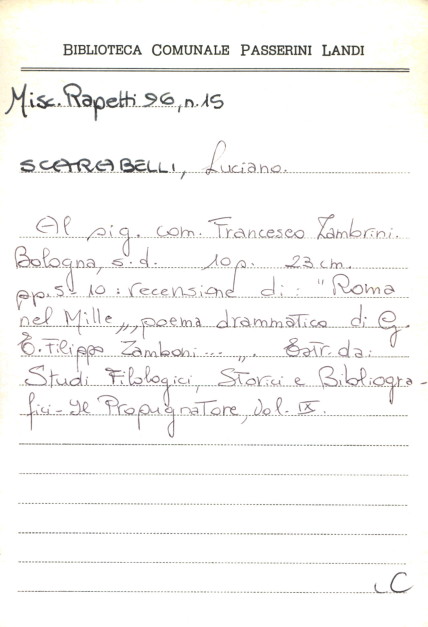 BIBLIOTECA COMUNALE PASSERINI LANDI
Misc. Rapetti 96, n. 15
SCARABELLI, Luciano.
Al sig. com. Francesco Zambrini.
Bologna, s.d. 10 p. 23 cm.
pp. 5-10: recensione di: "Roma
nel Mille", poema drammatico di G.
E. Filippo Zamboni ... ". Estr. da:
Studi Filologici, Storici e Bibliogra-
fici - Il Propugnatore, Vol. IX.
LC